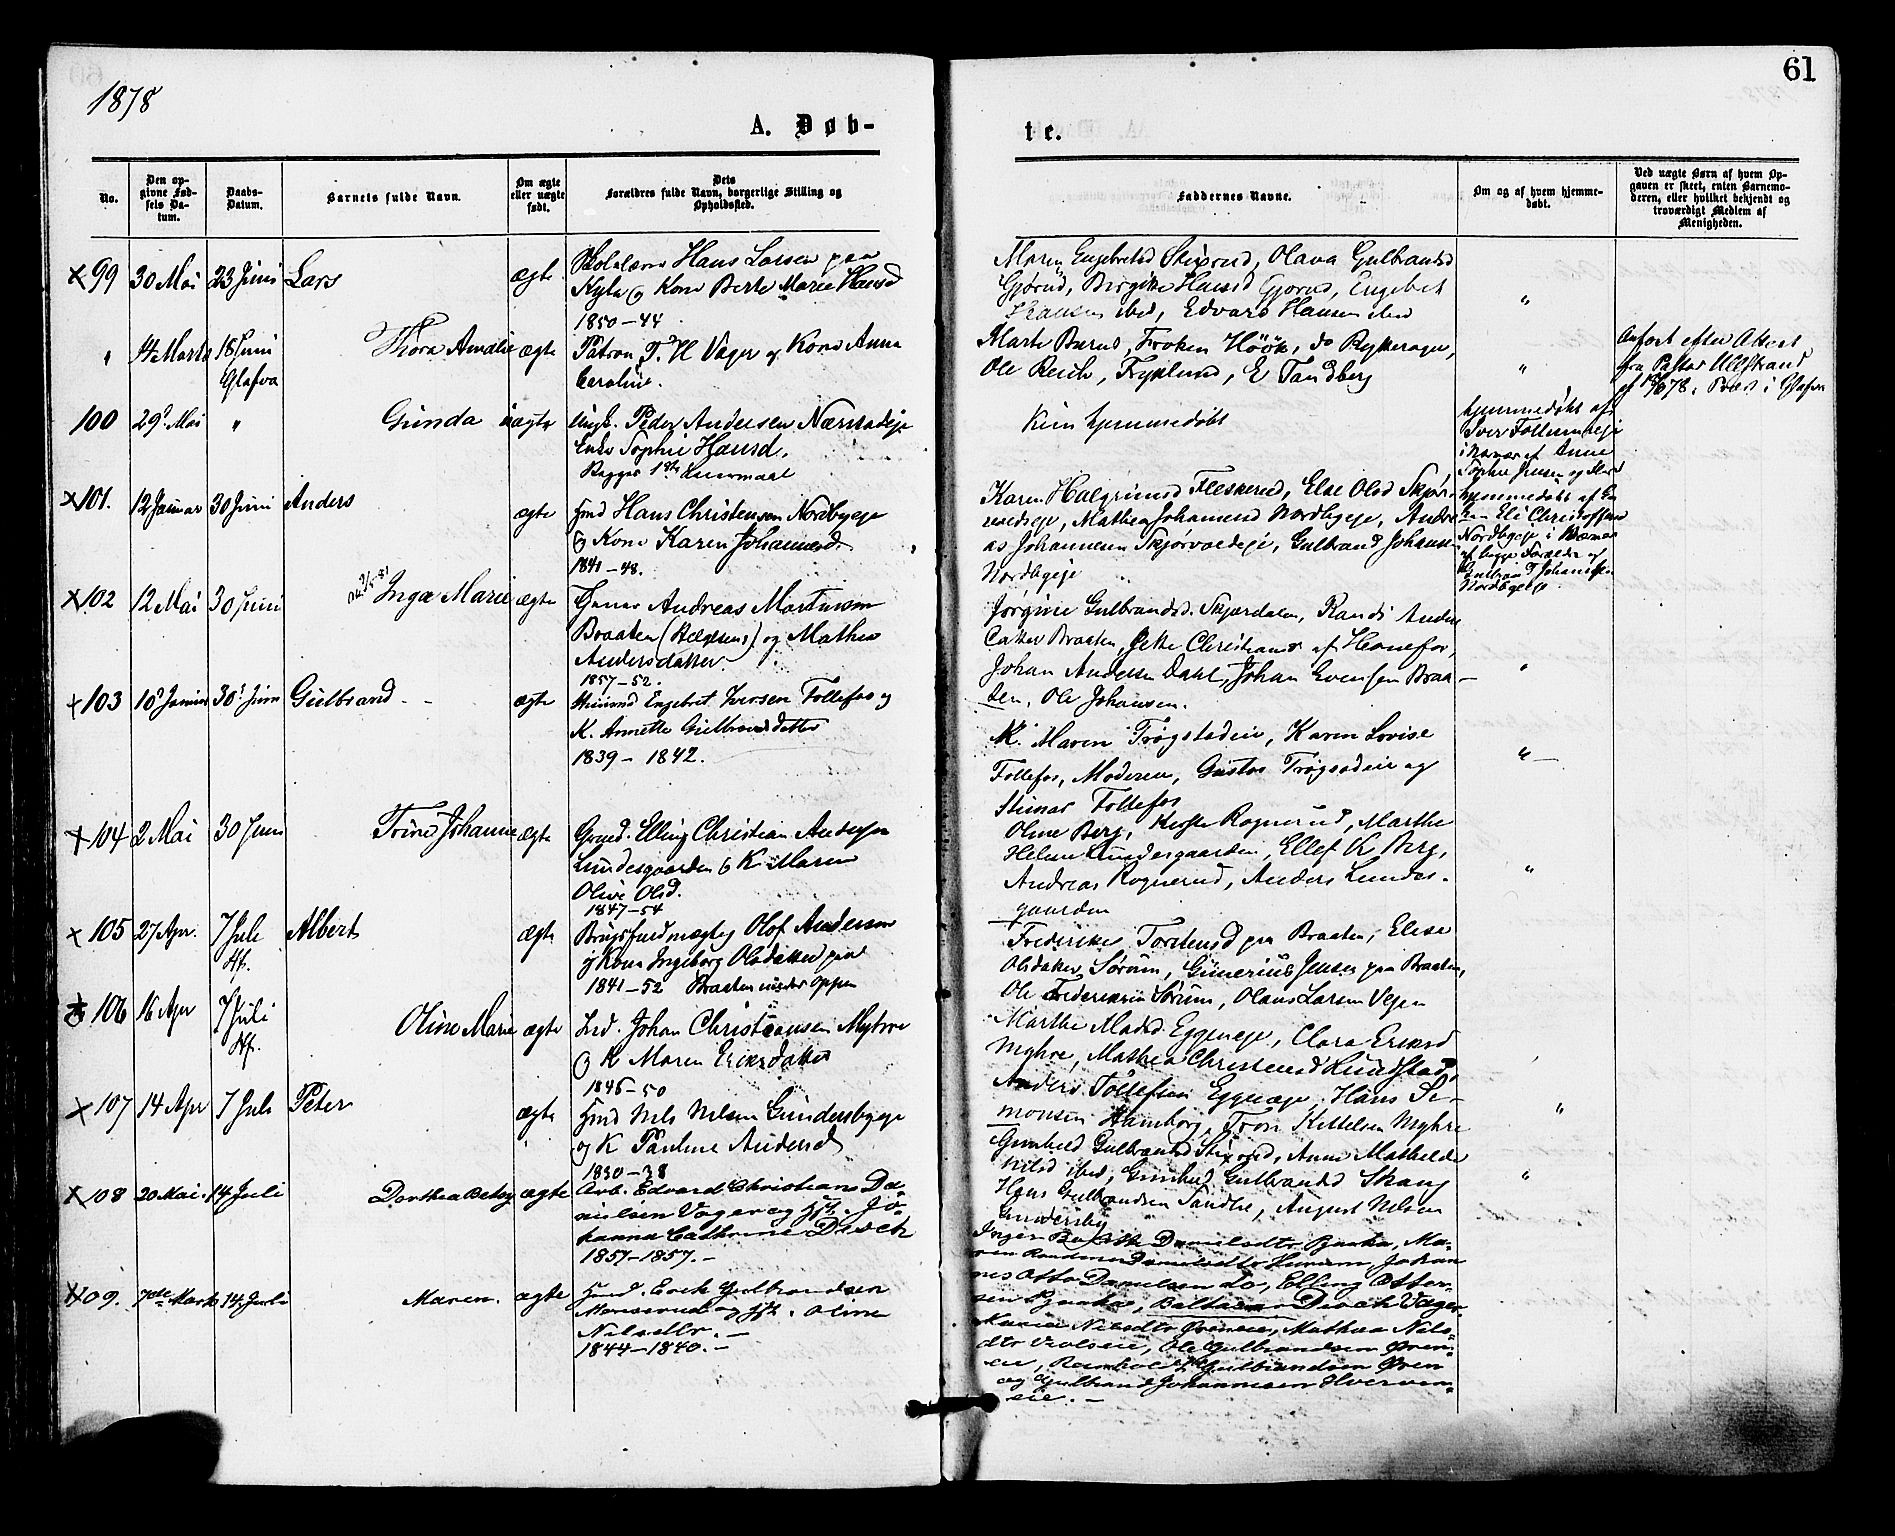 1878
61
A. Døb-
te.
No.
Den op-
givne Fød-
sels Da-
tum.
Daabs-
Datum.
Barnets fulde Navn.
Om ægte
eller uægte
født.
Dets
Forældres fulde Navn, borgerlige Stilling og
Opholdssted.
Faddernes Navne.
Om og af hvem hjemme-
døbt.
Ved uægte Børn af hvem Op-
gaven er skeet, enten Barnemo-
deren, eller hvilket bekjendt og
troværdigt Medlem af
Menigheden.
x 99 30 Mai 23 Juni Lars ægte
Hans Larsen paa
Kone Berte Marie Hansd
1850-44
Maren Engebretsd Skjørud, Olava Gulbrandsd
Gjørud, Birgitte Hansd Gjørud, Engebret
Hansen ibid, Edvard Hansen ibid
" 14 Marts 18 Juni
Glafva
Thora Amalie ægte
Patron T. H Vager og Kone Anna
Caroline.
Marte Børud, Frøken Höök, do Rykkerager,
Ole Resch, Fryklund, E Tandberg
"
Anført efter Attest
fra Pastor Ullstrand
Præst i Glafva
100 29d Mai " Gunda uægte
Ungk. Peder Andersen Næsstadeje
Enke Sophie Hansd.
Begges 1ste Leiermaal
Kun hjemmedøbt
hjemmedøbt af
Iver Follumseje
Anne
Sophie Jensen og
x 101. 12 Januar 30 Juni Anders ægte
Hmd Hans Christensen Nordbyeje
og Kone Karen Johannesd.
1841-48.
Karen Halgrimsd Fleskerud, Else Olsd Skjør-
voldseje, Mathea Johannesd Nordbyeje, Andre-
as Johannesen Skjørvoldeje, Gulbrand Johanse-
Nordbyeje
hjemmedøbt af
Eli Christoffersen
Nordbyeje i Nærvær
af begge Forældre og
Gulbrand Johansen
Nordbyeje
x 102 12 Mai 30 Juni Inga Marie ægte
Tjener Andreas Martinsen
Braaten (Helgesens) og Mathea
Andersdatter.
1857-52.
Jørgine Gulbrandsd. Skjærdalen, Randi Anders
Datter Braaten, Jette Christians af Hønefos,
Johan Andersen Dahl, Johan Evensen Braa-
ten, Ole Johansen.
"
x 103 10d Januar 30d Juni Gulbrand - - ægte
Huusmd Engebret Iversen Follefos og
K. Annette Gulbrandsdatter
1839 - 1842.
K. Maren Trøgstadeie, Karen Lovise
Follefos, Moderen, Gustav Trøgstadeie og
Steinar Follefos
"
x 104 2 Mai 30 Juni Trine Johanne ægte
Gaard. Elling Christian Andersen
Lundesgaarden og K. Maren
Olive Olsd.
1847-54
Oline Berg, Kirste Rognerud, Marthe
Helene Lundesgaarden, Ellef K Berg,
Andreas Rognerud, Anders Lundes-
gaarden
"
x 105 27 Apr. 7 Juli
Hf.
Albert ægte
Brugsfuldmægtig Olof Anderson
og Kone Ingeborg Olsdatter paa
1841-52 Braaten under Oppen
Frederikke Torstensd paa Braaten, Elise
Olsdatter Sørum, Gunerius Jensen paa Braaten,
Ole Frederiksen Sørum, Olaus Larsen Vejen
x 106 16 Apr 7 Juli
Hf.
Oline Marie ægte
Ind. Johan Christiansen Myhre
og K Maren Eriksdatter
1846-50
Marthe Madsd Eggeneje, Clara Eriksd
Myhre, Mathea Christensd Lundstad,
Anders Tollefsen Eggeneje, Hans Si-
monsen Hamborg, Tron Kittelsen Myhre
x 107 14 Apr 7 Juli Peter ægte
Hmd Nils Nilsen Gundersbyeje
og K Pauline Andersd
1830-38
Gunhild Gulbrandsd Skjørud, Anne Mathilde
Nilsd ibid, Gunhild Gulbrandsd Skaug
Hans Gulbrandsen Tandbe, August Nilsen
Gundersby
"
x 108 20 Mai. 14 Juli Dorthea Betsy ægte
Arb. Edvard Christians Da-
nielsen Vager og Hst. Jo-
hanna Cathrine Disch
1857-1857.-
Inger Danielsdtr Bjerke, Ma-
ren Danielsdtr Johan-
nes Otto Danielsen do, Elling Otter-
sen Bjerke, Baltazar Disch Vager.
"
x 109. 7de Marts 14 Juli Maren. ægte
Husmd. Erik Gulbrandsen
og Hst. Oline
Nilsdtr. -
1844-1840.-
Maria Nilsdtr Øreneie, Mathea Nils-
dtr Veolseie, Ole Gulbrandsen Øren-
eie, Reinhold Gulbrandsen Øren
og Gulbrand Johannesen Hverven-
eie. -